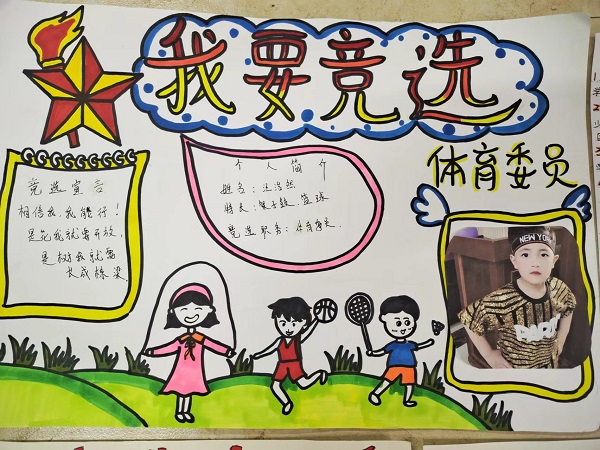 我要竞选
体育委员
竞选宣言
相信我,我能行!
是花我就要开放,
是树我就要
长成栋梁
个人简介
姓名:汪浩然
特长:架子鼓 篮球
竞选职务:体育委员
NEW YORK
PARIS